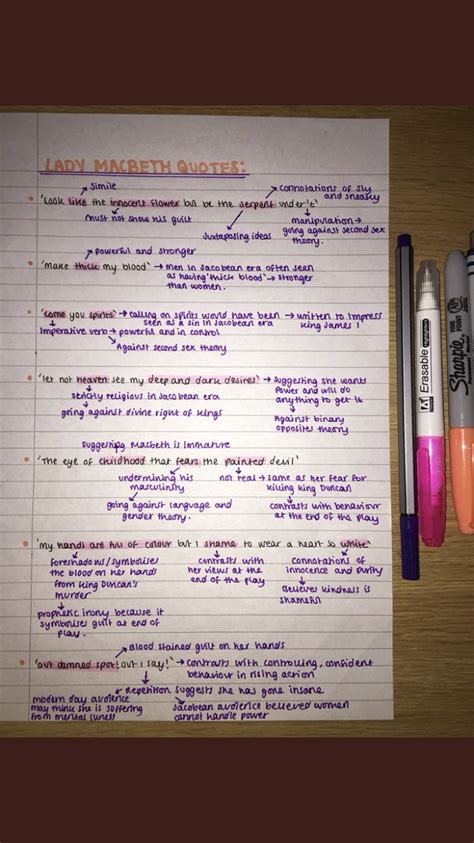 LADY MACBETH QUOTES:
simile
connotations of sly
and sneaky
'Look like the innocent flower but be the serpent under't'
must not show his guilt
juxtaposing ideas
manipulation →
going against second sex
theory.
powerful and stronger
'make thick my blood' → men in Jacobean era often seen
as having 'thick blood' → stronger
than women.
'come you spirits' → calling on spirits would have been → written to impress
seen as a sin in Jacobean era
King James I
Imperative verb → powerful and in control
Against second sex theory
'let not heaven see my deep and dark desires' → suggesting she wants
power and will do
anything to get it
strictly religious in Jacobean era
going against divine right of kings
Against binary
opposites theory
suggesting Macbeth is immature
'The eye of childhood that fears the painted devil'
undermining his
masculinity
not real → same as her fear for
killing King Duncan
going against language and
gender theory.
contrasts with behaviour
at the end of the play
'my hands are full of colour but I shame to wear a heart so white'
foreshadows/symbolises
the blood on her hands
from King Duncan's
murder
contrasts with
her views at the
end of the play
connotations of
innocence and purity
believes kindness is
shameful
prophetic irony because it
symbolises guilt at end of
play.
Blood stained guilt on her hands
'out damned spot! out I say!' → contrasts with controlling, confident
behaviour in rising action
Repetition suggests she has gone insane
modern day audience
may think she is suffering
from mental illness
Jacobean audience believed women
cannot handle power
Erasable
highlighters
Sharpie